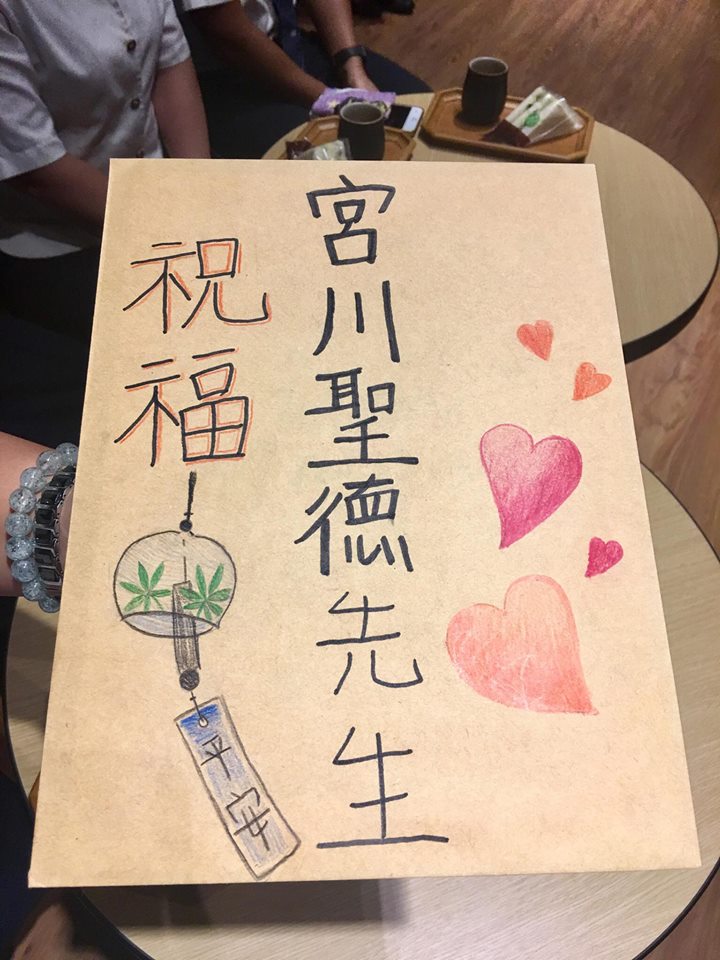 宮川聖德先生
祝福
平安